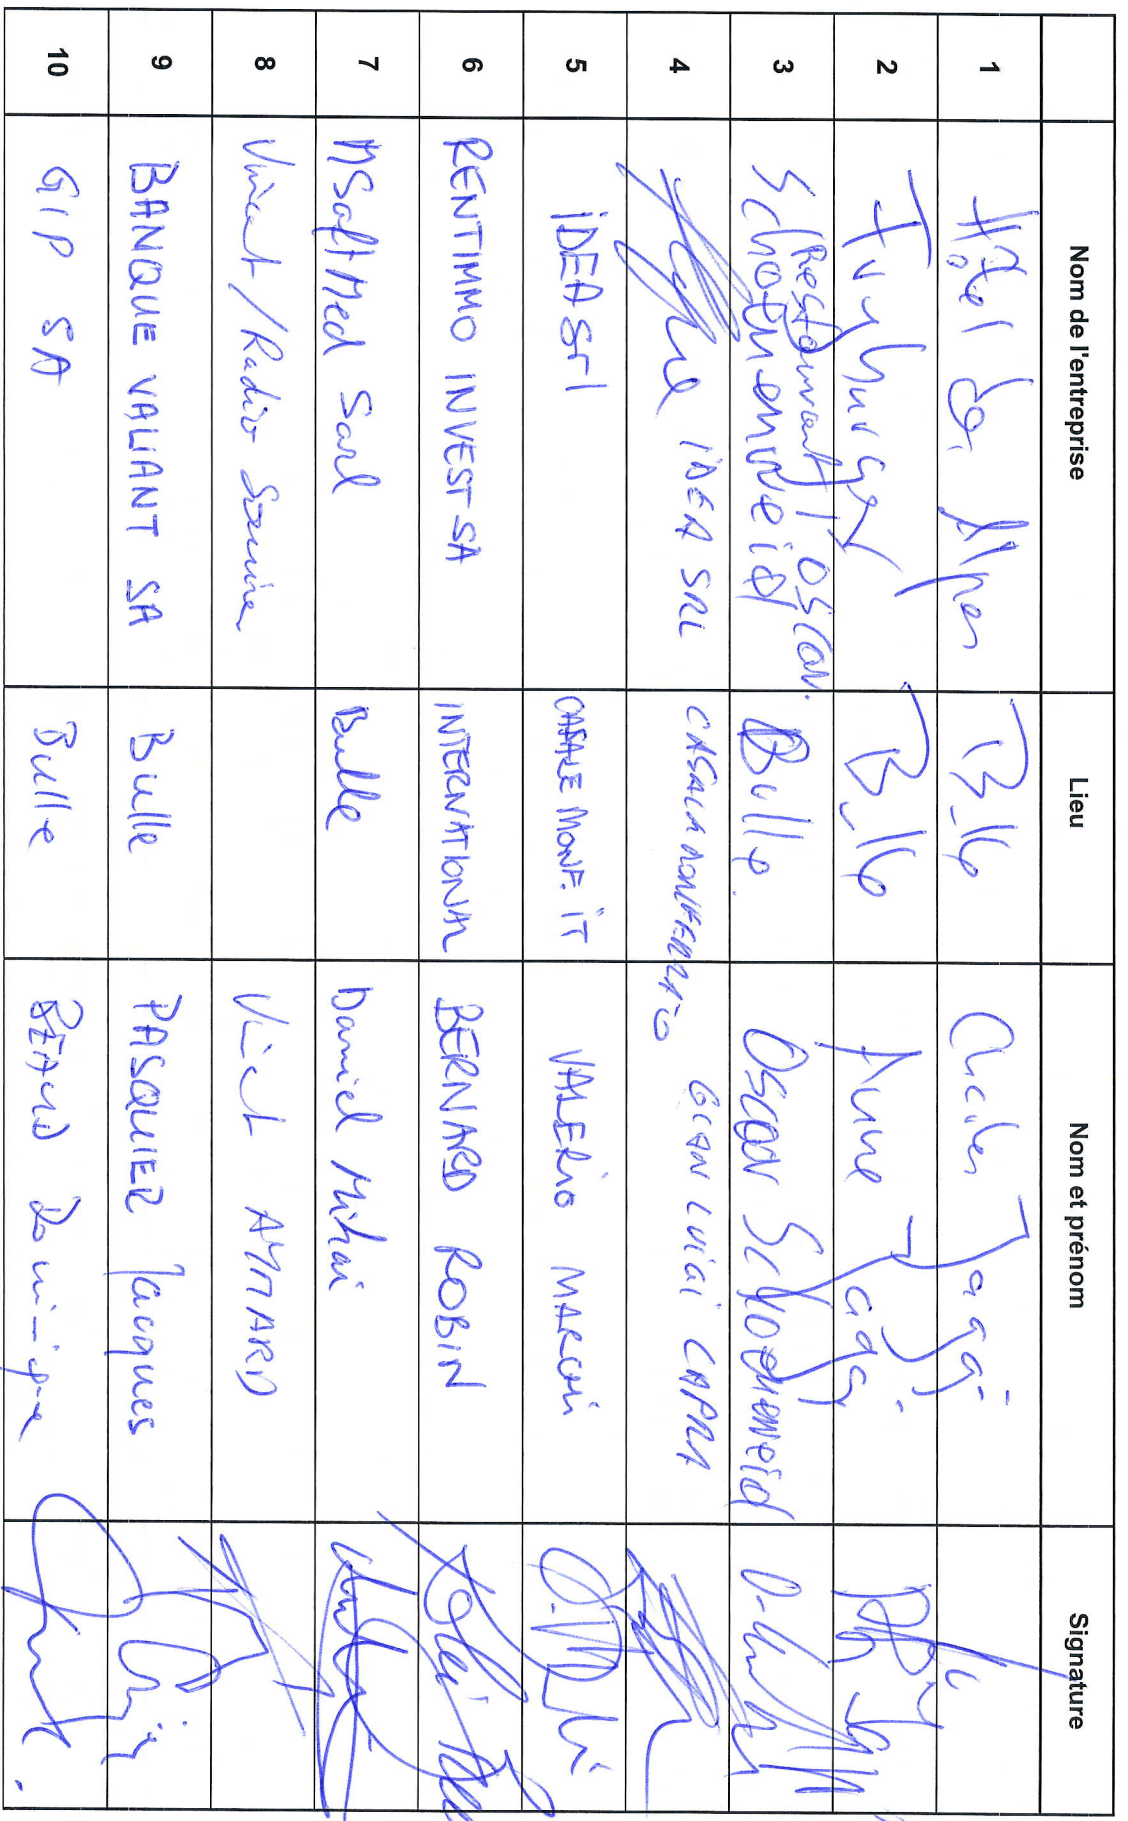 Nom de l'entreprise Lieu Nom et prénom Signature
1 Hôtel des Alpes Bulle Charles Jaggi
2 Bulle Anne Jaggi
3 Restaurant Oscar
Schoeneweid Bulle. Oscar Schoeneweid
4 IDEA SRL CASALE MONFERRATO GIAN LUIGI CAPRA
5 iDEA Srl CASALE MONF. iT VALERiO MARCHi
6 RENTIMMO INVEST SA INTERNATIONAL BERNARD ROBIN
7 MSoftMed Sarl Bulle Daniel Mihai
8 Vincent / Radio Vincent AYMARD
9 BANQUE VALIANT SA Bulle PASQUIER Jacques
10 GIP SA Bulle BEAUD Dominique